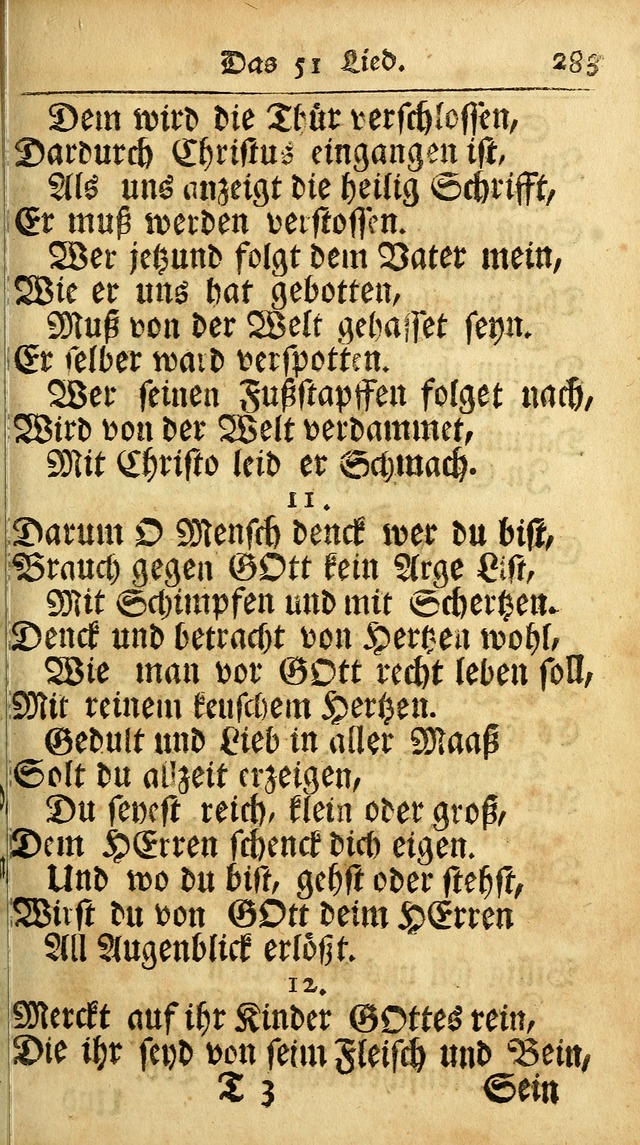 Das 51 Lied. 283
Dem wird die Thür verschlossen,
Dardurch Christus eingangen ist,
Als uns anzeigt die heilig Schrifft,
Er muß werden verstossen.
Wer jetzund folgt dem Vater mein,
Wie er uns hat gebotten,
Muß von der Welt gehasset seyn.
Er selber ward verspotten.
Wer seinen Fußstapffen folget nach,
Wird von der Welt verdammet,
Mit Christo leid er Schmach.
11.
Darum O Mensch denck wer du bist,
Brauch gegen GOtt kein Arge List,
Mit Schimpfen und mit Schertzen.
Denck und betracht von Hertzen wohl,
Wie man vor GOtt recht leben soll,
Mit reinem keuschem Hertzen.
Gedult und Lieb in aller Maaß
Solt du allzeit erzeigen,
Du seyest reich, klein oder groß,
Dem HErren schenck dich eigen.
Und wo du bist, gehst oder stehst,
Wirst du von GOtt deim HErren
All Augenblick erlößt.
12.
Merckt auf ihr Kinder GOttes rein,
Die ihr seyd von seim Fleisch und Bein,
T 3 Sein